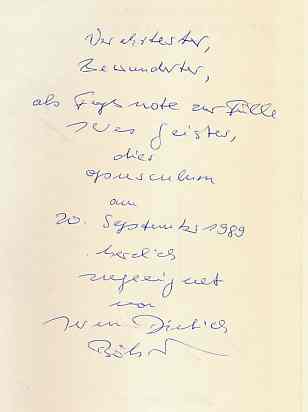 Verehrtester,
Bewunderter,
als Fußnote zur Fülle
Ihres Geistes,
dies
opusculum
am
20. September 1989
herzlich
zugeeignet
von
Ihrem Dietrich